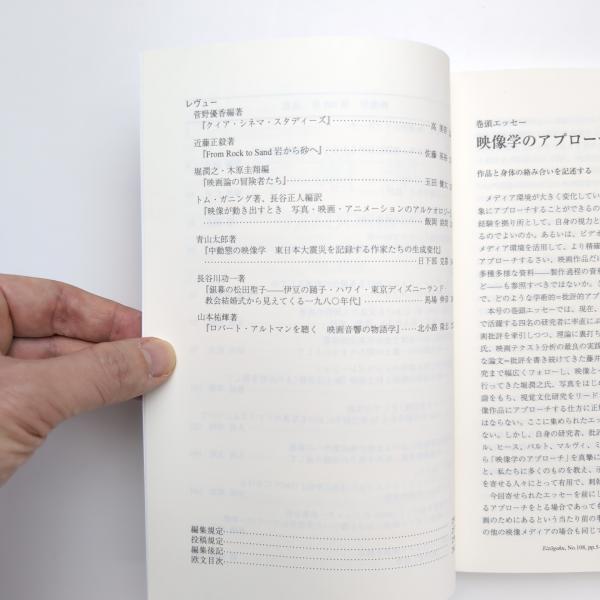 レヴュー
菅野優香編著
『クィア・シネマ・スタディーズ』
近藤正毅著
『From Rock to Sand 岩から砂へ』
堀潤之・木原圭翔編
『映画論の冒険者たち』
トム・ガニング著、長谷正人編訳
『映像が動き出すとき 写真・映画・アニメーションのアルケオロジー』
青山太郎著
『中動態の映像学 東日本大震災を記録する作家たちの生成変化』
長谷川功一著
『銀幕の松田聖子――伊豆の踊子・ハワイ・東京ディズニーランド・
教会結婚式から見えてくる一九八〇年代』
山本祐輝著
『ロバート・アルトマンを聴く 映画音響の物語学』
編集規定
投稿規定
編集後記
欧文目次
巻頭エッセー
映像学のアプローチ
作品と身体の絡み合いを記述する
メディア環境が大きく変化してい
象にアプローチすることができるの
経験を拠り所として、自身の視力と
るのでよいのか。あるいは、ビデオ
メディア環境を活用して、より精確
アプローチするさい、映画作品だけ
多種多様な資料――製作過程の資料
ど――も参照すべきではないか。さ
で、どのような学術的＝批評的アプ
本号の巻頭エッセーでは、現在、
で活躍する四名の研究者に率直にぶ
画批評を牽引しつつ、理論に裏打ち
氏、映画テクスト分析の最良の実践
な論文＝批評を書き続けてきた藤井
究まで幅広くフォローし、映像と
行ってきた堀潤之氏、写真をはじめ
論をもち、視覚文化研究をリード
像作品にアプローチする仕方に正
はならない。ここに集められたエッ
ない。しかし、自身の研究者、批評
ル、ヒース、バルト、マルヴィ、ミ
ら「映像学のアプローチ」を真摯に
と、私たちに多くのものを教え、示
を寄せる人々にとって有用で、刺
今回寄せられたエッセーを前にし
るアプローチをとる場合であって
画のためにあるという当たり前の事
の他の映像メディアの場合も同じて
Eizōgaku, No.108, pp.5-